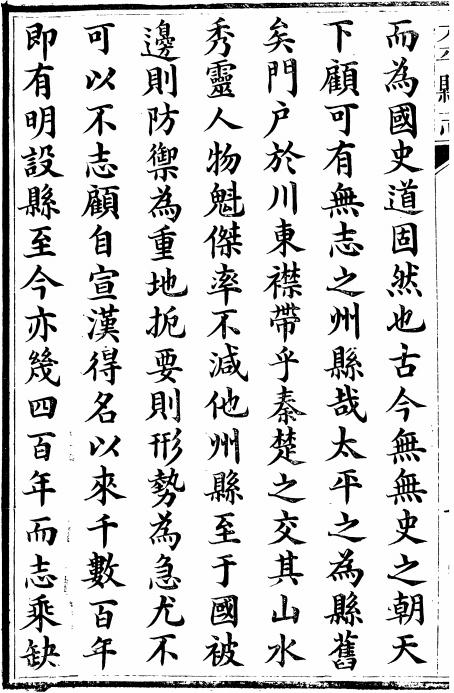 太平縣志
而為國史道固然也古今無無史之朝天
下顧可有無志之州縣哉太平之為縣舊
矣門户於川東襟帶乎秦楚之交其山水
秀靈人物魁傑率不減他州縣至于國被
邊則防禦為重地扼要則形勢為急尤不
可以不志顧自宣漢得名以來千數百年
即有明設縣至今亦幾四百年而志乘缺